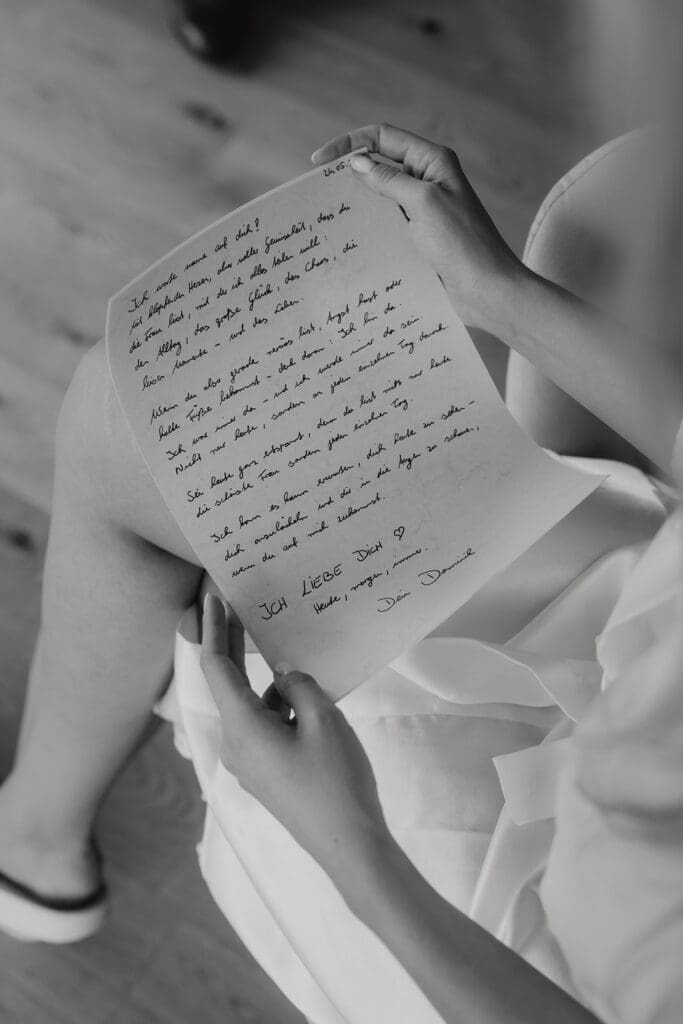 24.05.
Ich warte vorne auf dich!
mit klopfendem Herzen, aber voller Gewissheit, dass du
die Frau bist, mit der ich alles teilen will:
den Alltag, das große Glück, das Chaos, die
leisen Momente – und das Leben.
Wenn du also gerade nervös bist, Angst hast oder
kalte Füße bekommst – denk daran: Ich bin da.
Ich war immer da – und ich werde immer da sein.
Nicht nur heute, sondern an jedem einzelnen Tag danach.
Sei heute ganz entspannt, denn du bist nicht nur heute
die schönste Frau sondern jeden einzelnen Tag.
Ich kann es kaum erwarten, dich heute zu sehen –
dich anzulächeln und dir in die Augen zu schauen,
wenn du auf mich zukommst.
ICH LIEBE DICH ♡
Heute, morgen, immer.
Dein Dominik